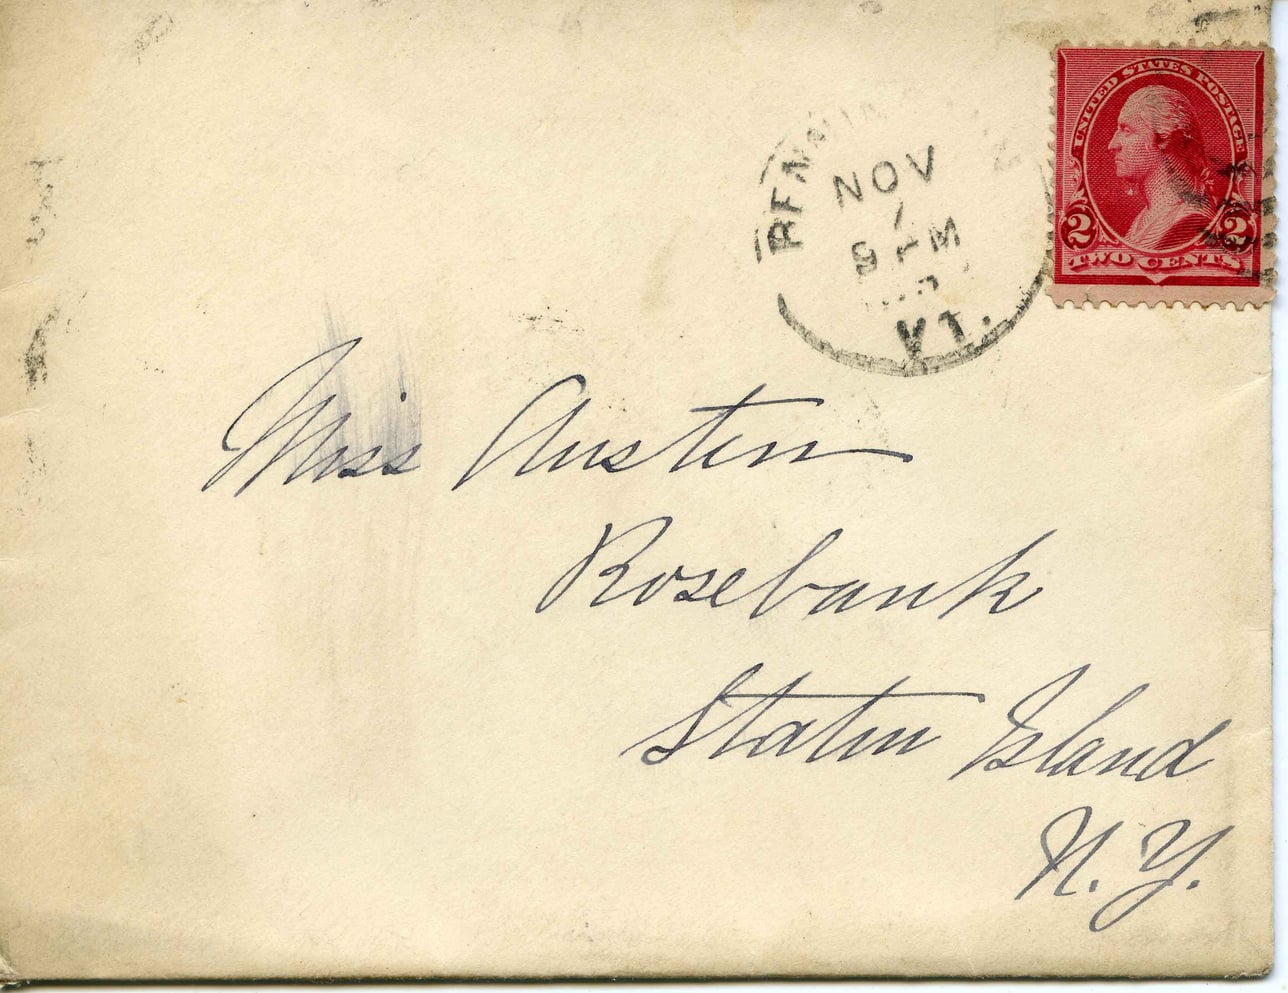 UNITED STATES POSTAGE
2 2
TWO CENTS
NOV
9 PM
VT.
Miss Austen
Rosebank
Staten Island
N. Y.